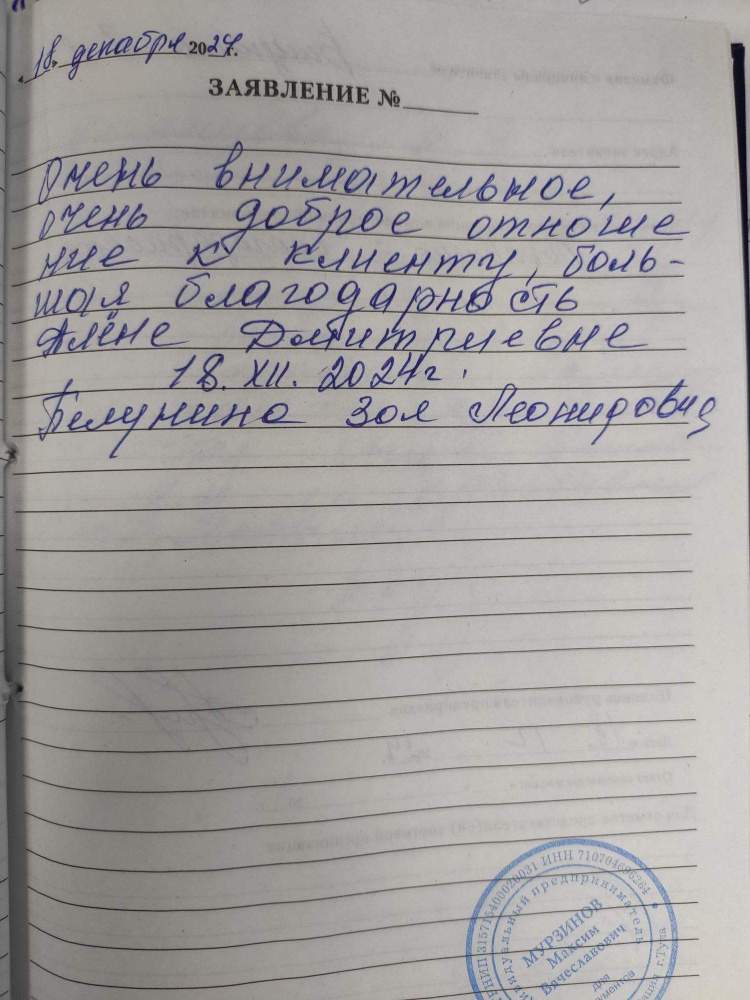 18. декабря 2024г.
ЗАЯВЛЕНИЕ №
Очень внимательное,
очень доброе отноше
ние к клиенту, боль-
шая благодарность
Алёне Дмитриевне
18. XII. 2024г.
Белунина Зоя Леонидовна
ОГРНИП 315715400020031 ИНН 710704696264
Индивидуальный предприниматель
МУРЗИНОВ
Максим
Вячеславович
для
документов
г.Тула